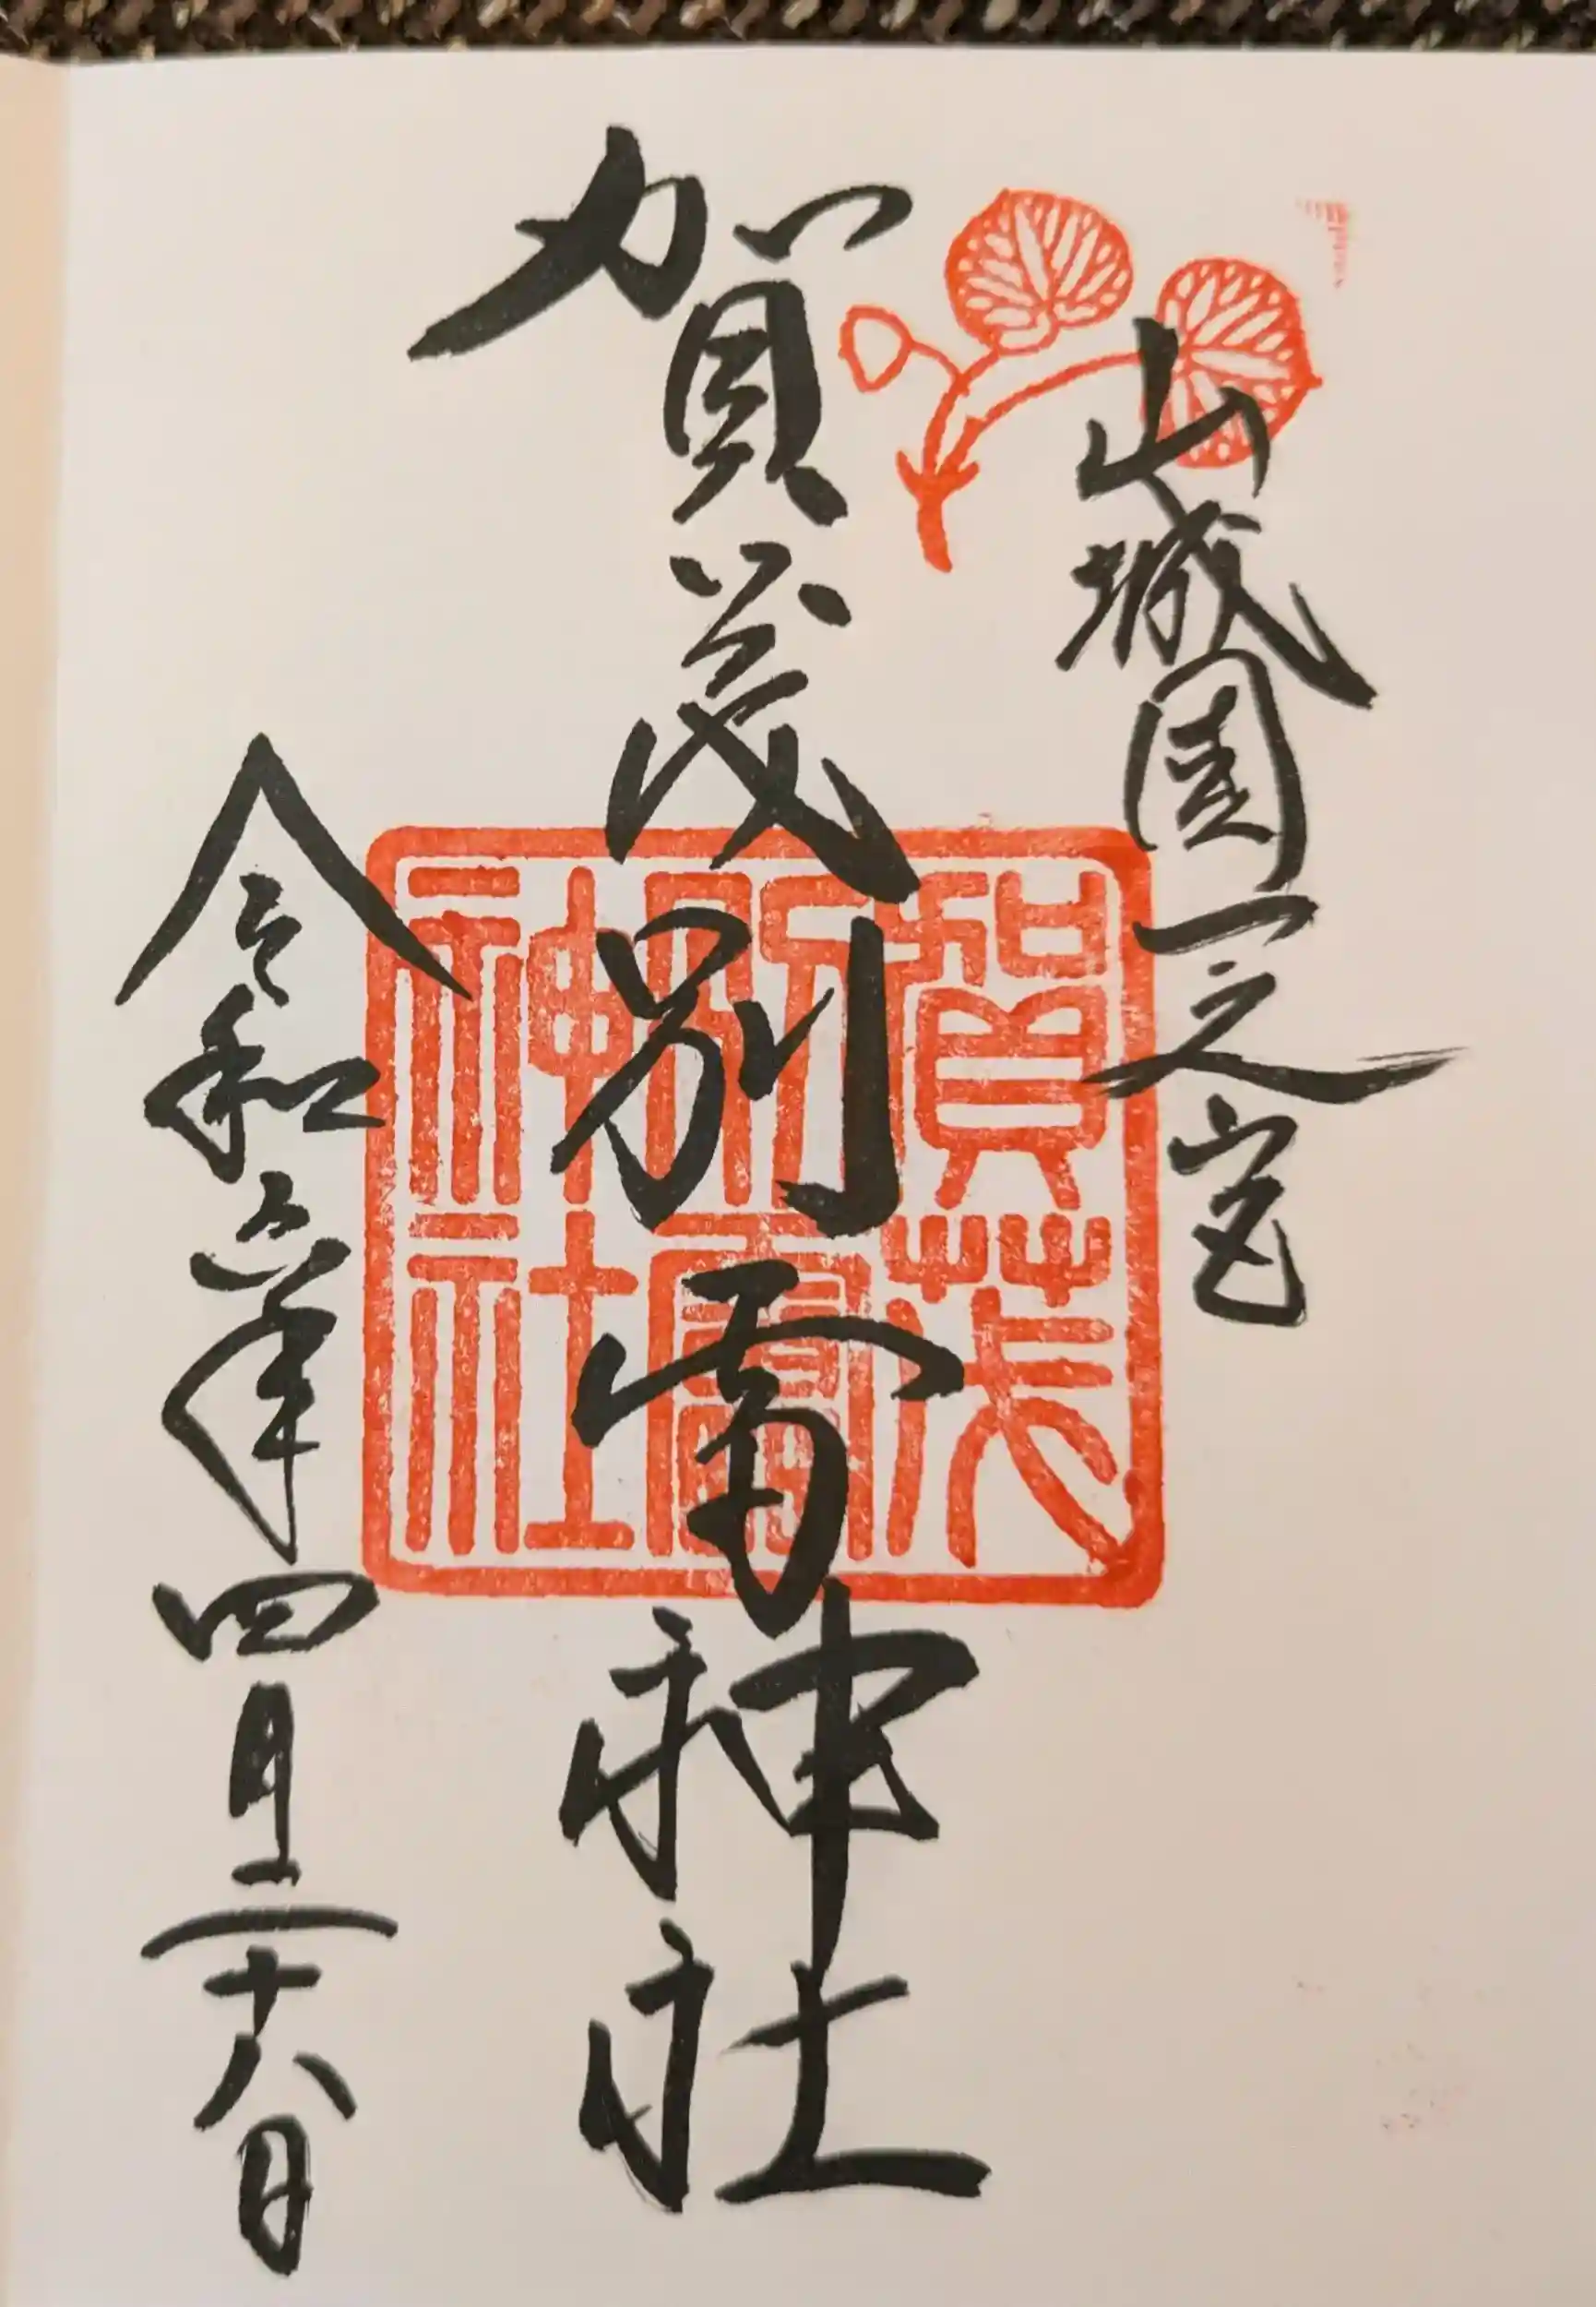 山城國一之宮
賀茂別雷神社
令和六年四月二十八日
賀茂
別雷
神社